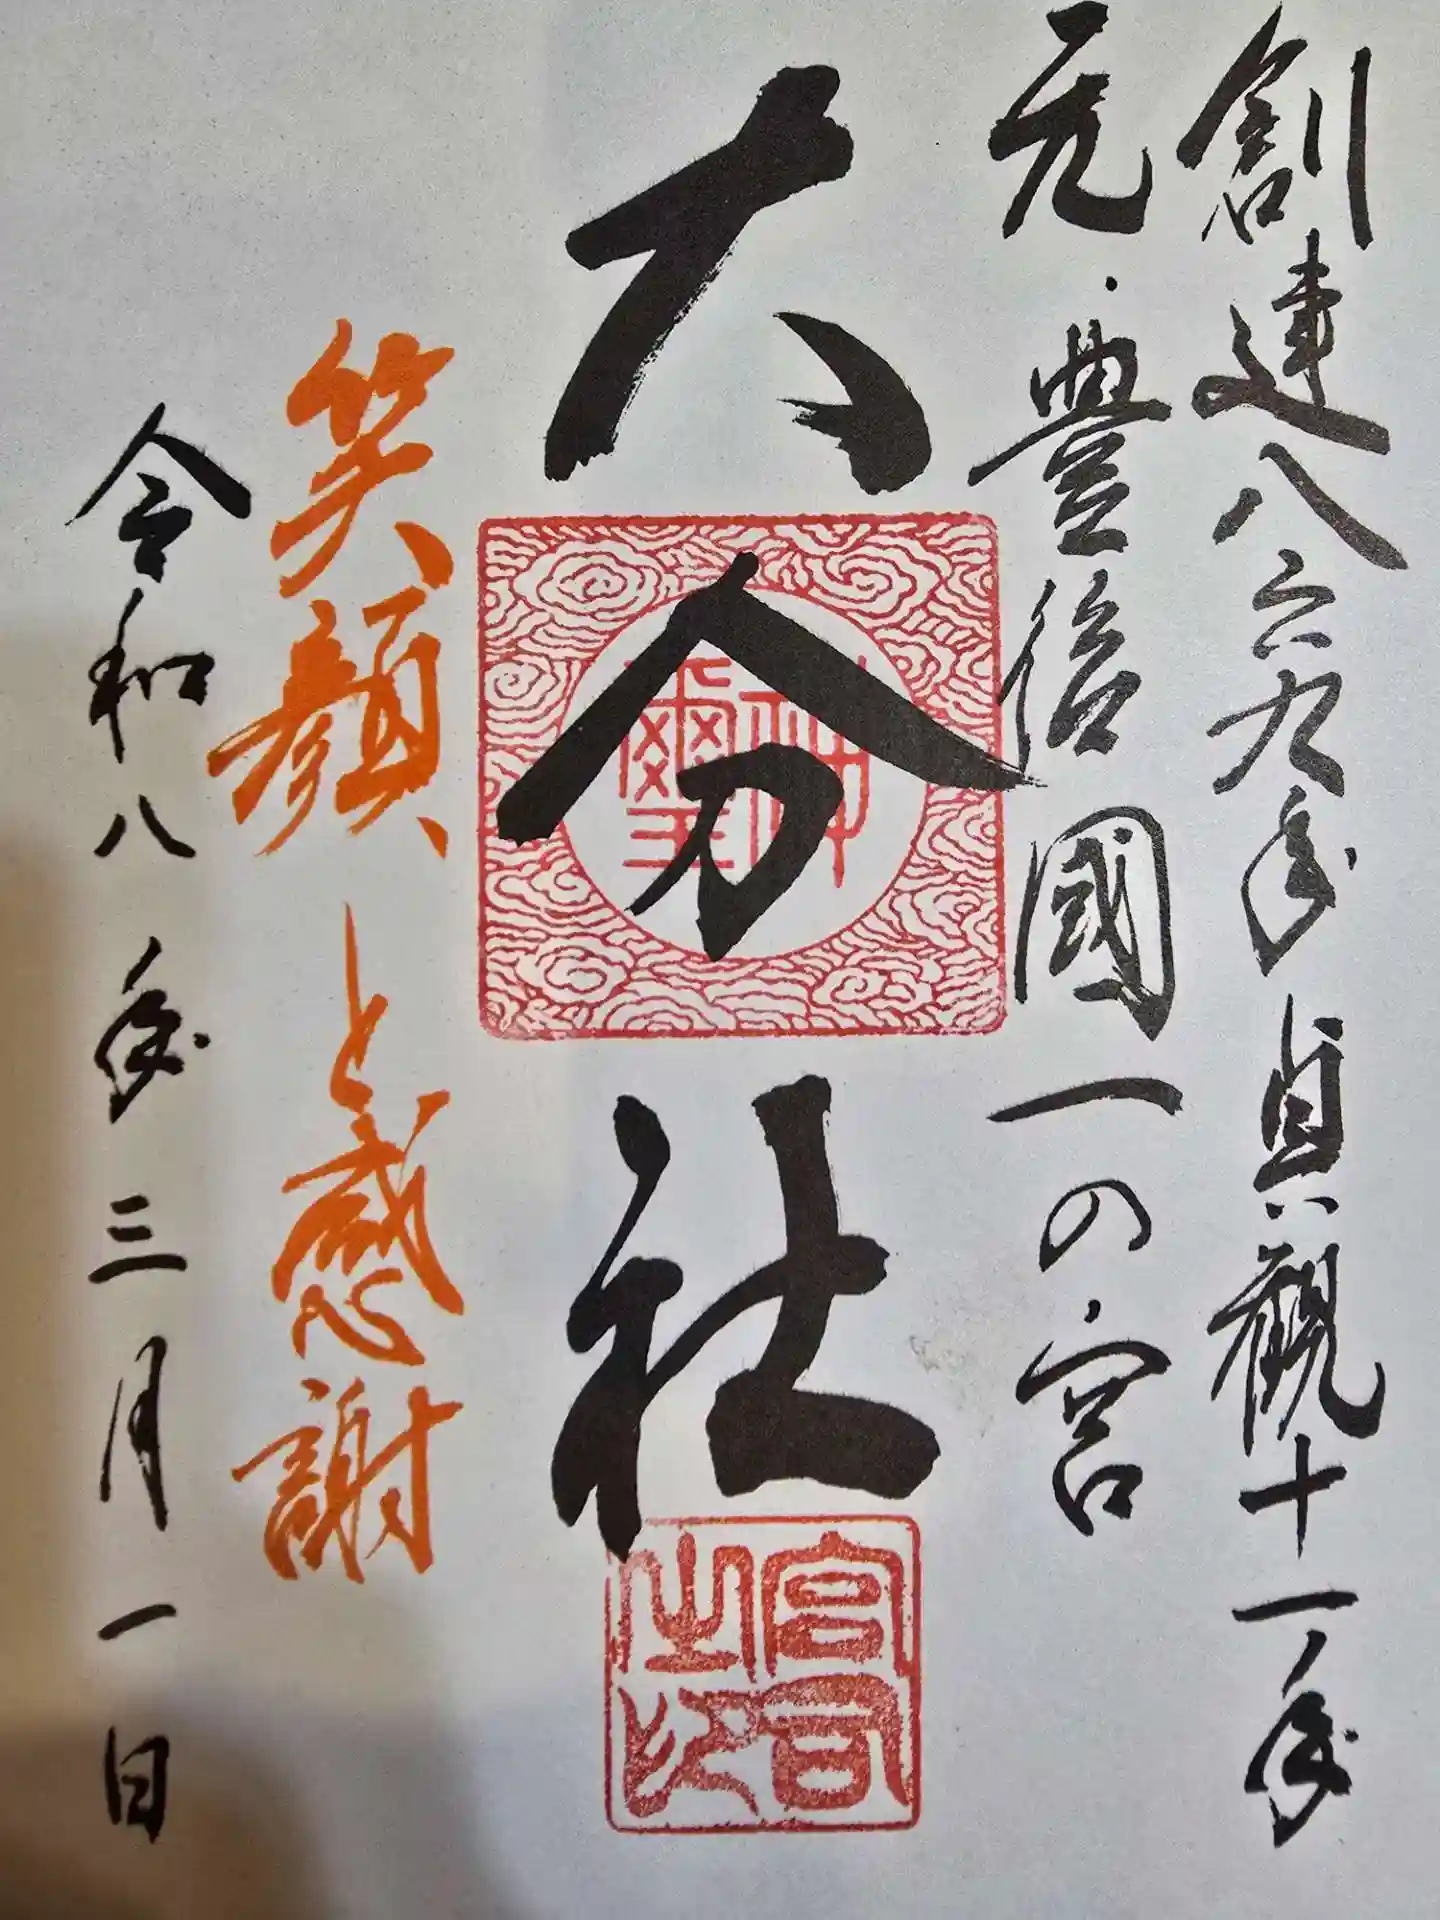 創建八六九年 貞観十一年
元・豊後國一の宮
大分社
神璽
宮司之印
笑顔と感謝
令和八年三月一日